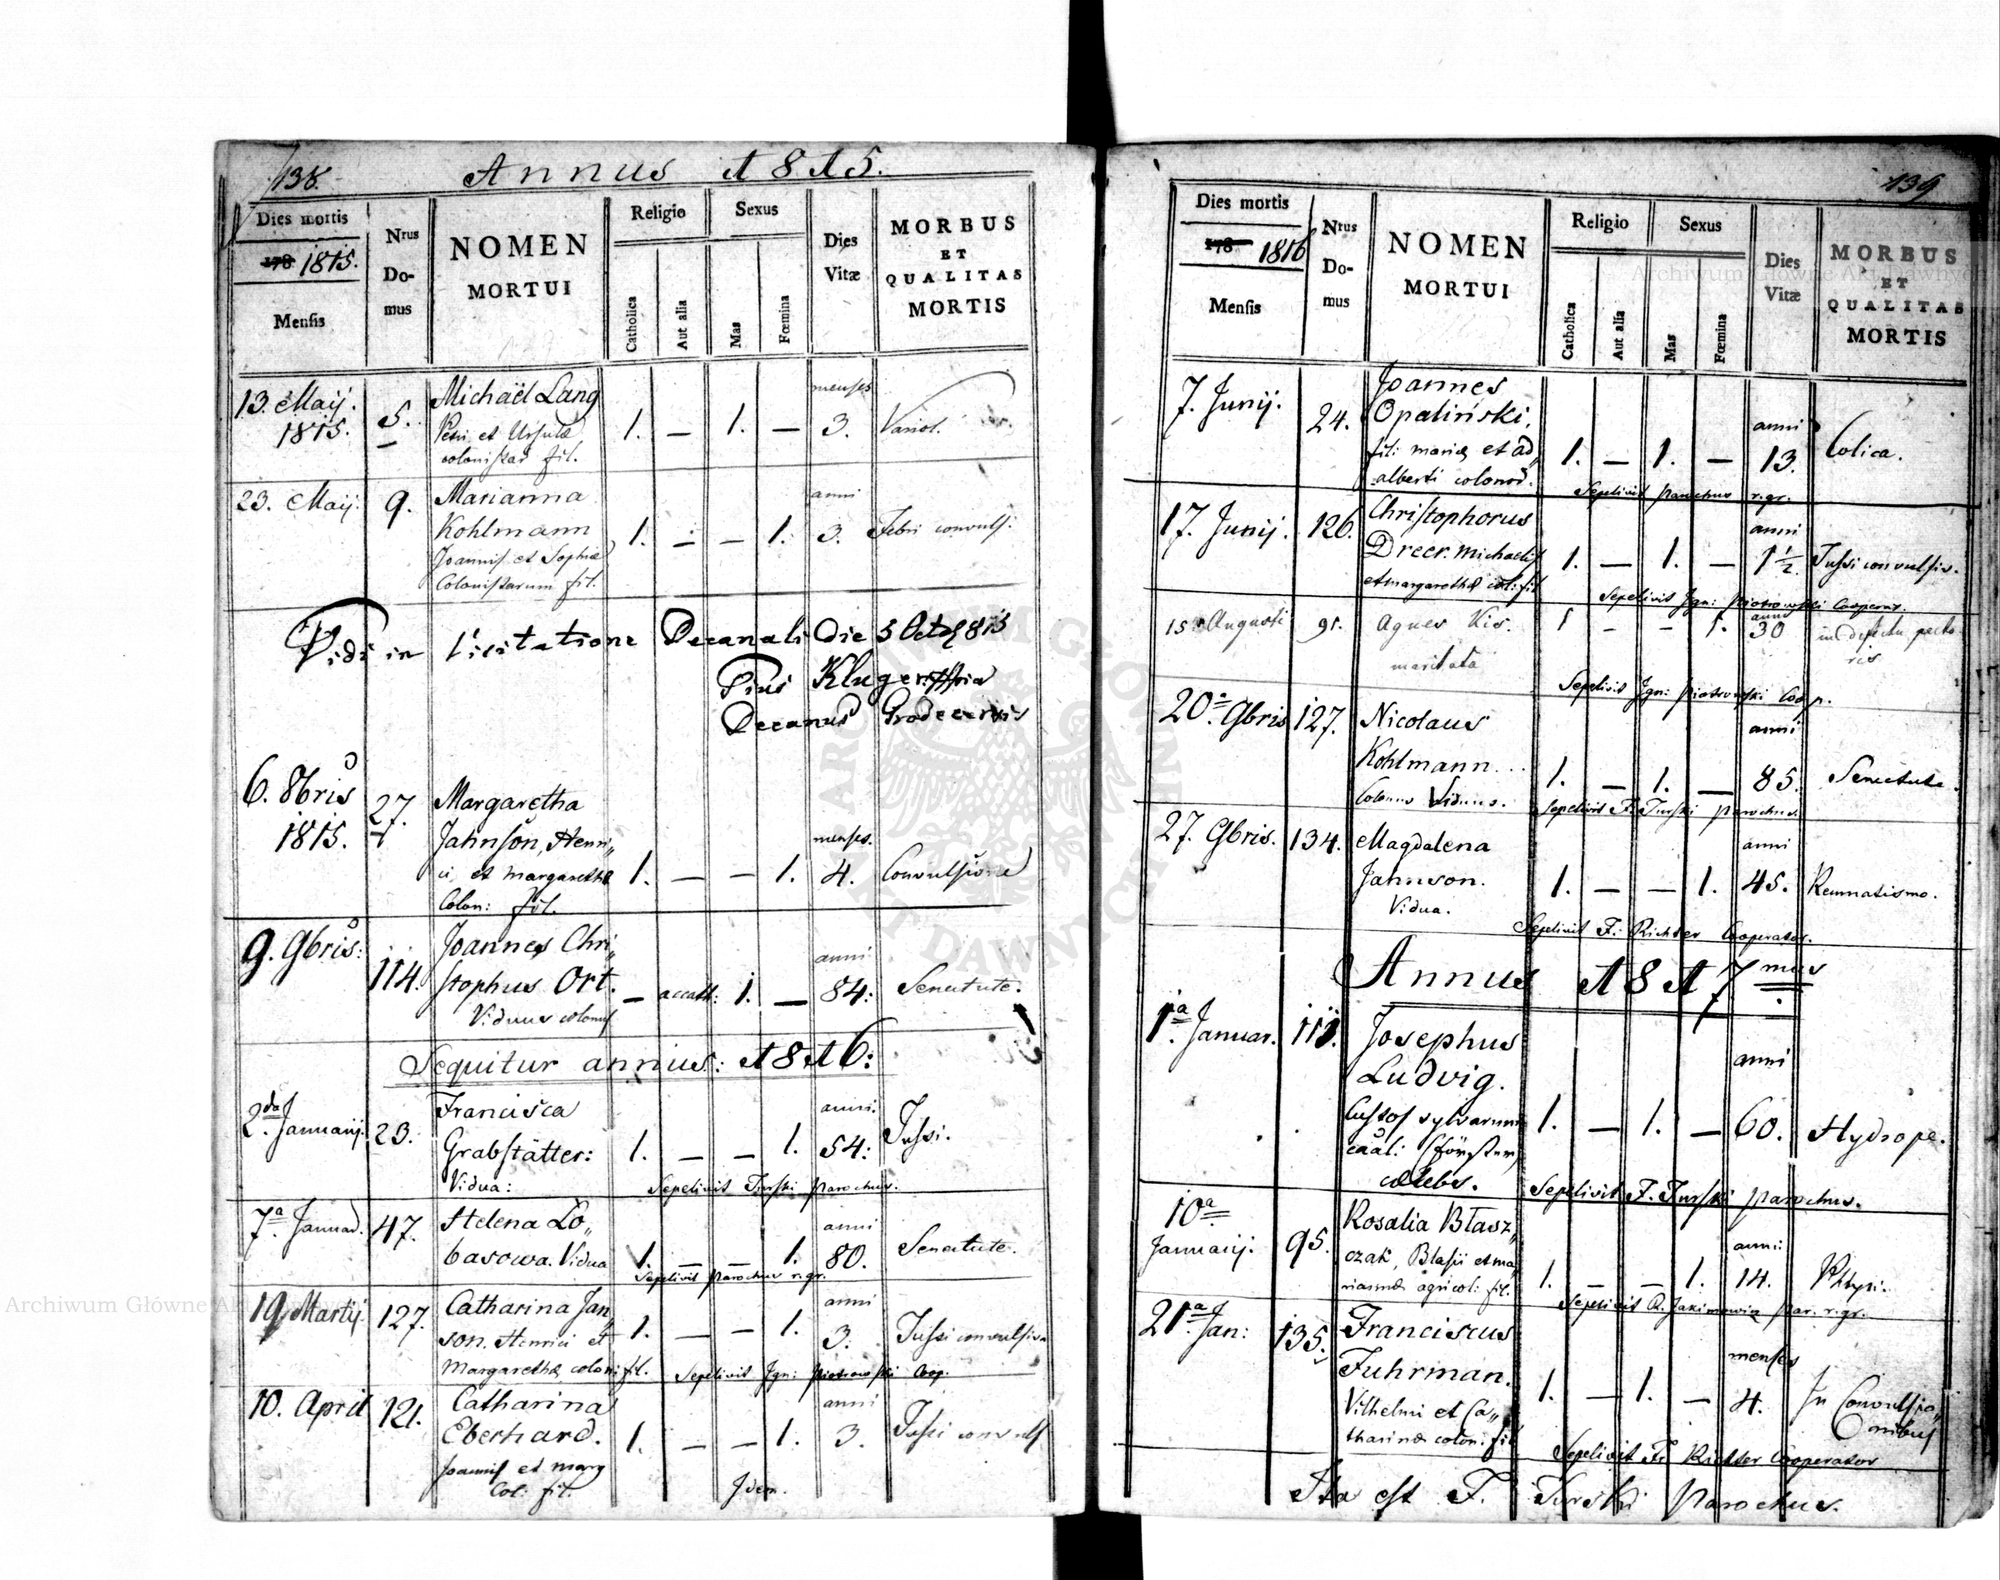 138.
Annus 1815.
Dies mortis
178 1815.
Mensis
Nrus
Do-
mus
NOMEN
MORTUI
Religio
Catholica
Aut alia
Sexus
Mas
Fœmina
Dies
Vitæ
MORBUS
ET
QUALITAS
MORTIS
13. Maij. 5. Michaël Lang menses
1815. Petri et Ursula 1. — 1. — 3. Variol.
colonistar fil.
23. Maij. 9. Marianna anni
Kohlmann 1. — — 1. 3. Febri convuls.
Joannis et Sophia
Colonistarum fil.
Vidi in Visitatione Decanali Die 5 Octob 815
Pius Kluger
Decanus Grodecensis
6. 8bris 27. Margaretha
1815. Jahnson, Henri„ menses.
ci, et Margaretha 1. — — 1. 4. Convulsione
Colon: fil.
9. 9bris: 114. Joannes Chri„ anni
stophus Ort. — accath: 1. — 84: Senectute.
Viduus colonus
Sequitur annus: 1816:
2da Januarij. 23. Francisca anni.
Grabstätter: 1. — — 1. 54: Tussi.
Vidua: Sepelivit Turski Parochus.
7a Januar. 47. Helena Lo„ anni
basowa. Vidua 1. — — 1. 80. Senectute.
Sepelivit Parochus r. gr.
19 Martij 127. Catharina Jan„ anni
son. Henrici et 1. — — 1. 3. Tussi convulsiva
Margaretha coloni fil. Sepelivit Ign: Piotrowski Coop.
10. April 121. Catharina anni
Eberhard. 1. — — 1. 3. Tussi convuls
Joannis et Marg
Col: fil. Idem.
139
Dies mortis
178 1816
Mensis
Nrus
Do-
mus
NOMEN
MORTUI
Religio
Catholica
Aut alia
Sexus
Mas
Fœmina
Dies
Vitæ
MORBUS
ET
QUALITAS
MORTIS
7. Junij. 24. Joannes
Opaliński, anni
fil: maria et ad„ 1. — 1. — 13. Colica.
alberti colonor.
Sepelivit Parochus r. gr.
17. Junij. 126. Christophorus anni
Dreer. Michaelis 1. — 1. — 1½. Tussi convulsiv.
et margaretha col: fil
Sepelivit Ign: Piotrowski Cooperat.
15 Augusti 91. Agnes Kis. 1 — — 1. anni 30 in defectu pecto
maritata ris
Sepelivit Ign: Piotrowski Coop.
20a 9bris 127. Nicolaus anni
Kohlmann 1. — 1. — 85. Senectute.
Colonus Viduus. Sepelivit F. Turski Parochus.
27. 9bris. 134. Magdalena anni
Jahnson. 1. — — 1. 45. Reumatismo.
Vidua.
Sepelivit F. Richter Cooperator.
Annus 1817mus
1a Januar. 111. Josephus
Ludvig. anni
Custos sylvarum 1. — 1. — 60. Hydrope.
(Förster)
cœlebs. Sepelivit F. Turski Parochus.
10a Januarij. 95. Rosalia Błasz„ anni
czak, Blasii et ma„ 1. — — 1. 14. Phtysi.
rianna agricol: fil.
Sepelivit R. Jakimowicz par. r. gr.
21a Jan: 135. Franciscus menses
Fuhrman. 1. — 1. — 4. In Convulsio„
Vilhelmi et Ca„ nibus
tharina colon: fil
Sepelivit F. Richter Cooperator
Ita est F. Turski Parochus.
ARCHIWUM GŁÓWNE
AKT DAWNYCH
Archiwum Główne Akt Dawnych
Archiwum Główne Akt